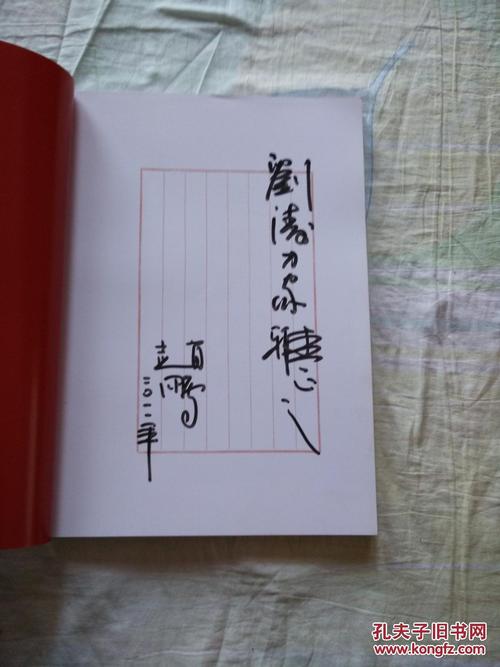 劉濤方家雅正之
趙鹏
二〇一一年
孔夫子旧书网
kongfz.com